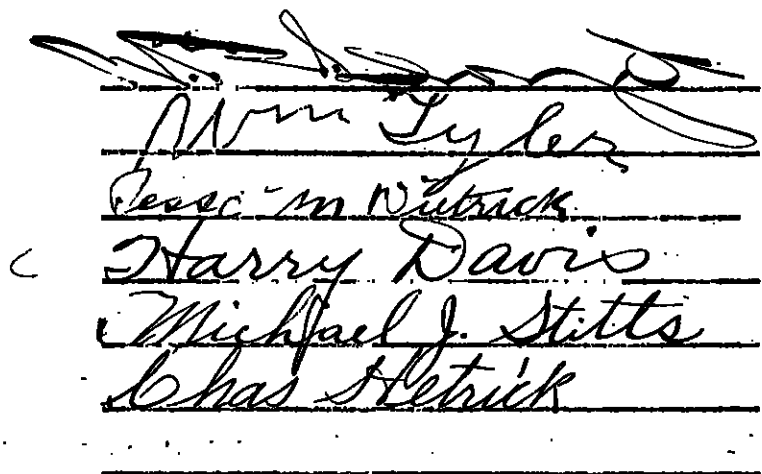 Wm Tyler
Jesse M Dietrick
Harry Davis
Michael J. Stitts
Chas Hetrick